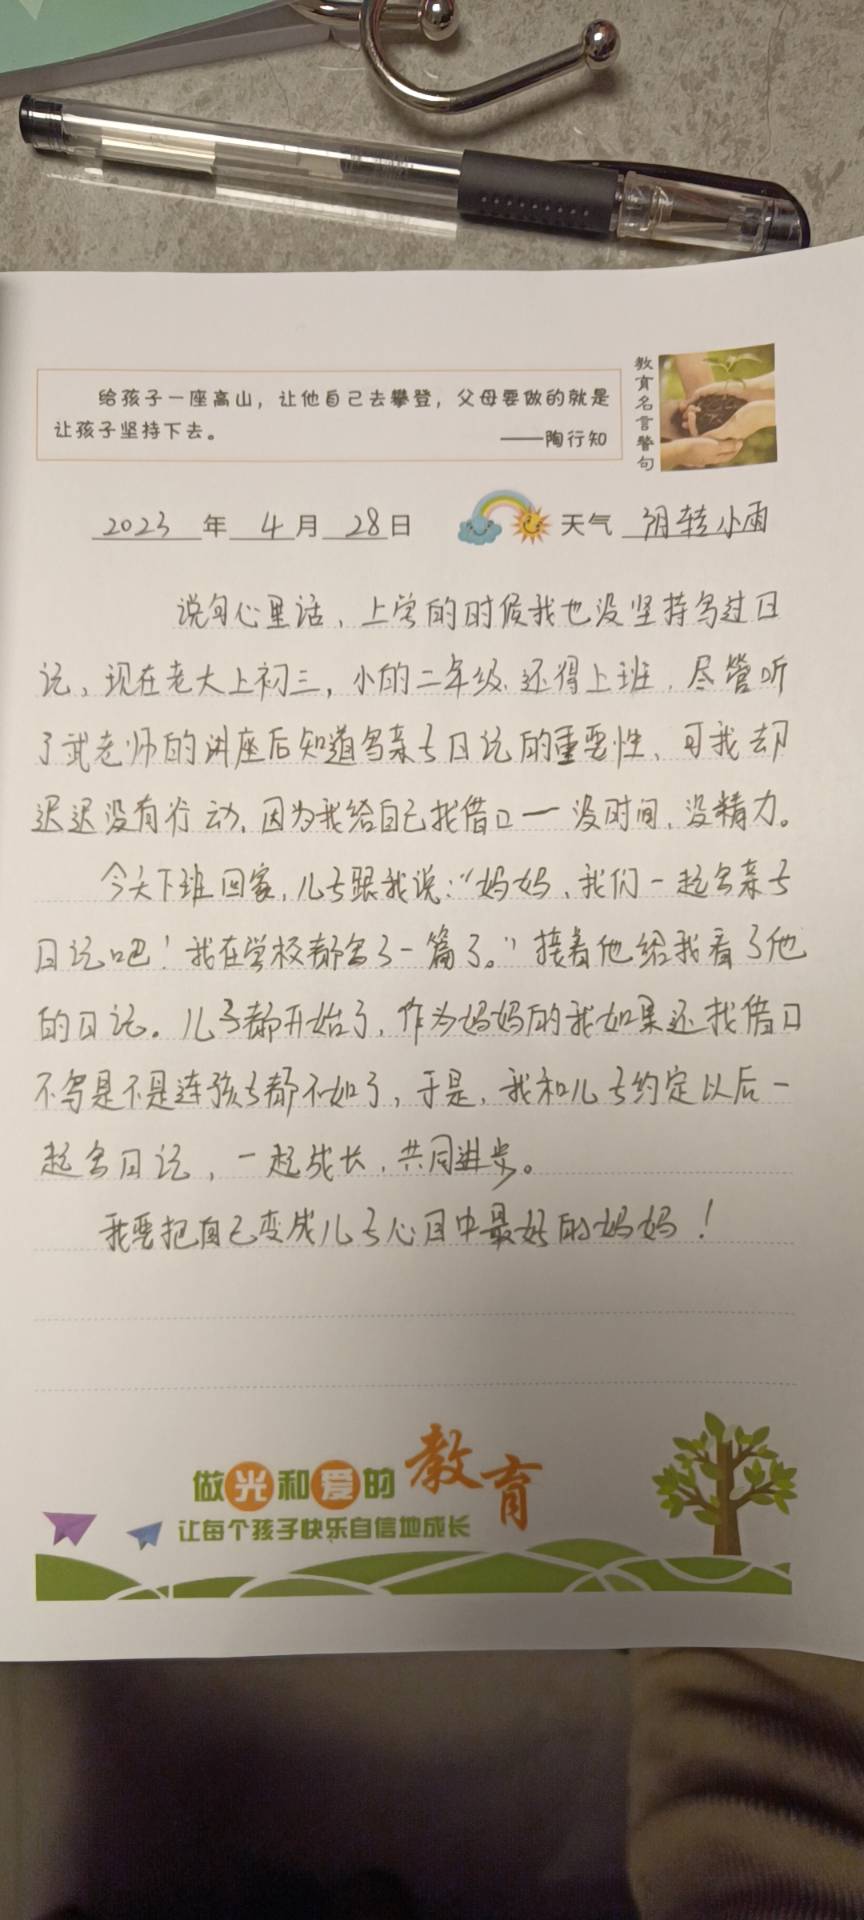 给孩子一座高山，让他自己去攀登，父母要做的就是
让孩子坚持下去。
——陶行知
教育名言警句
2023年4月28日 天气 阴转小雨
说句心里话，上学的时候我也没坚持写过日
记，现在老大上初三，小的二年级，还得上班，尽管听
了武老师的讲座后知道写亲子日记的重要性，可我却
迟迟没有行动，因为我给自己找借口一没时间，没精力。
今天下班回家，儿子跟我说：“妈妈，我们一起写亲子
日记吧！我在学校都写了一篇了。”接着他给我看了他
的日记。儿子都开始了，作为妈妈的我如果还找借口
不写是不是连孩子都不如了，于是，我和儿子约定以后一
起写日记，一起成长，共同进步。
我要把自己变成儿子心目中最好的妈妈！
做光和爱的教育
让每个孩子快乐自信地成长